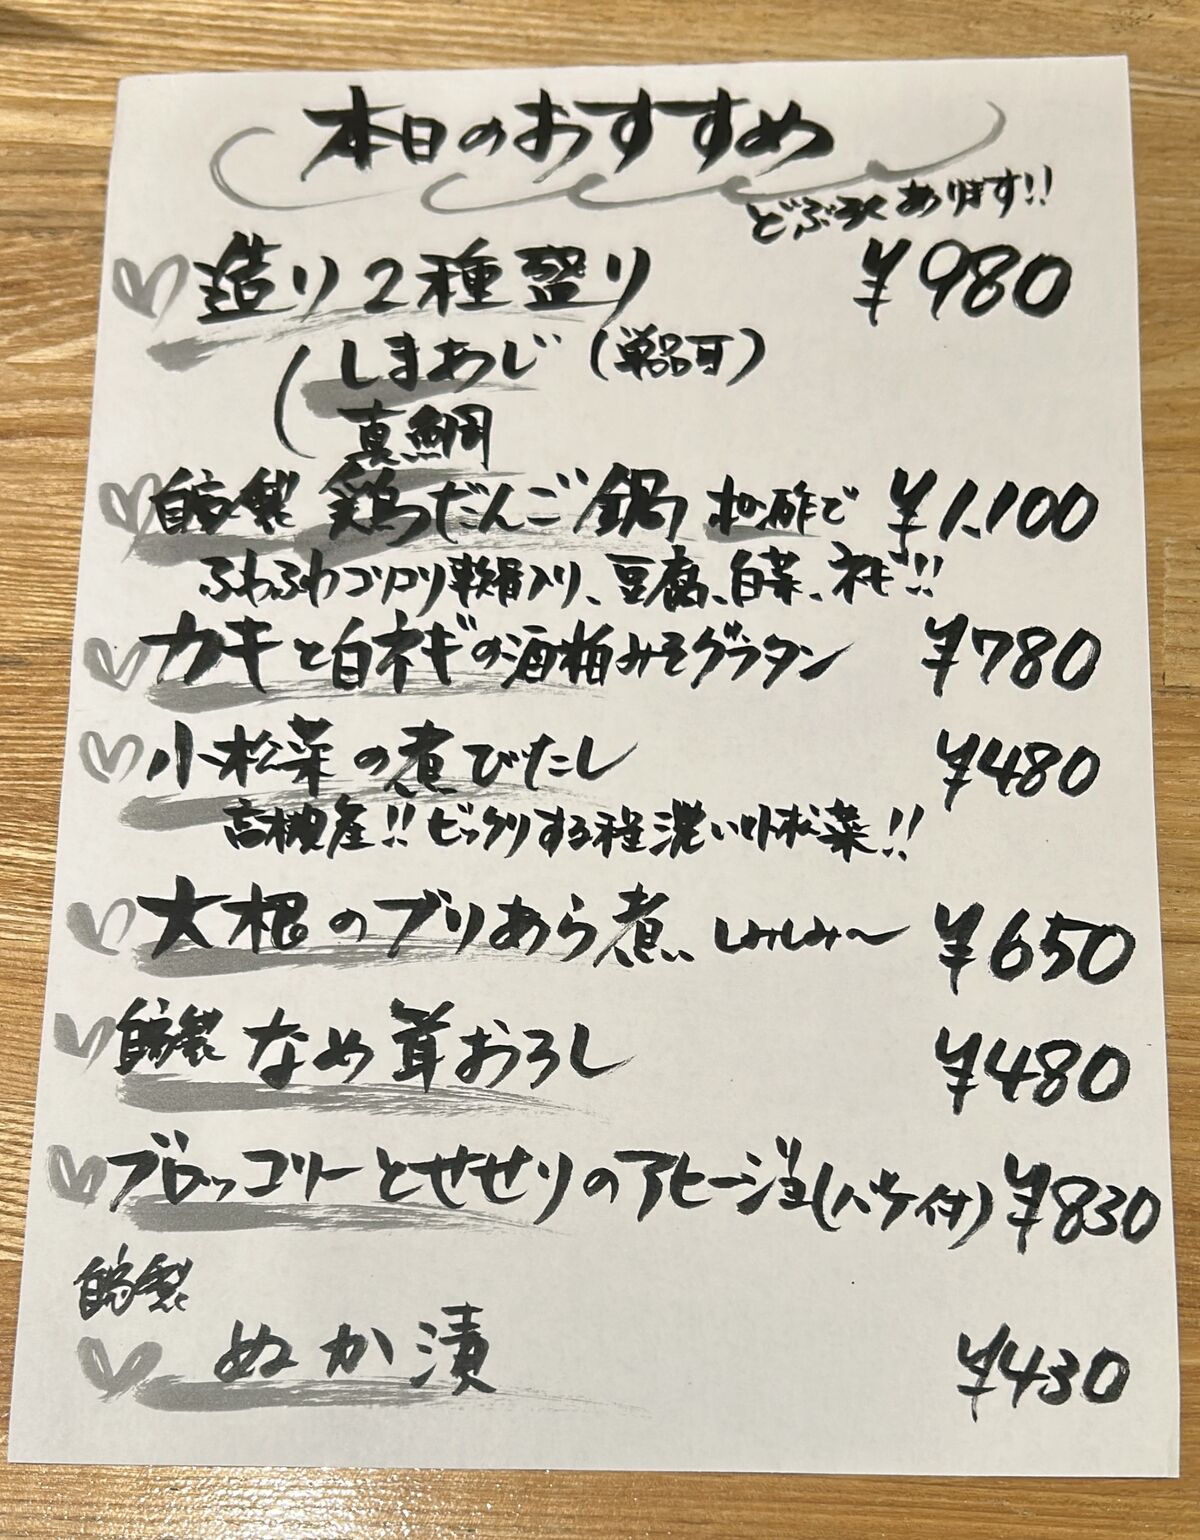 本日のおすすめ
どぶろくあります!!
造り2種盛り ¥980
しまあじ (単品可)
真鯛
自家製 鶏だんご鍋 ポン酢で ¥1,100
ふわふわコリコリ軟骨入り、豆腐、白菜、ネギ!!
カキと白ネギの酒粕みそグラタン ¥780
小松菜の煮びたし ¥480
高槻産!!ビックリする程濃い小松菜!!
大根のブリあら煮 しみしみ〜 ¥650
自家製 なめ茸おろし ¥480
ブロッコリーとせせりのアヒージョ(バケ付) ¥830
自家製
ぬか漬 ¥430